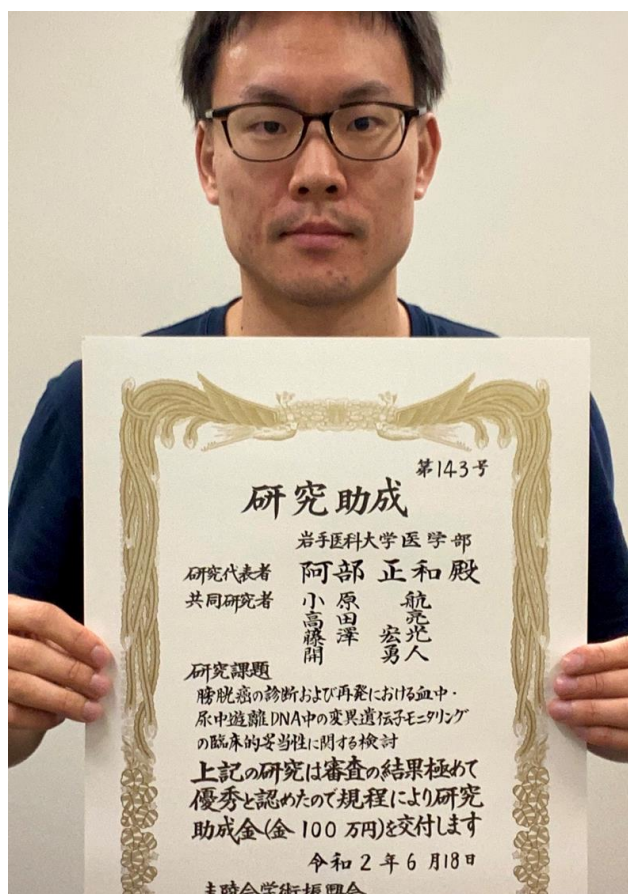 第143号
研究助成
岩手医科大学医学部
研究代表者 阿部 正和 殿
共同研究者 小原 航
高田 亮
藤澤 宏光
開 勇人
研究課題
膀胱癌の診断および再発における血中・
尿中遊離DNA中の変異遺伝子モニタリング
の臨床的妥当性に関する検討
上記の研究は審査の結果極めて
優秀と認めたので規程により研究
助成金(金100万円)を交付します
令和2年6月18日
圭陵会学術振興会